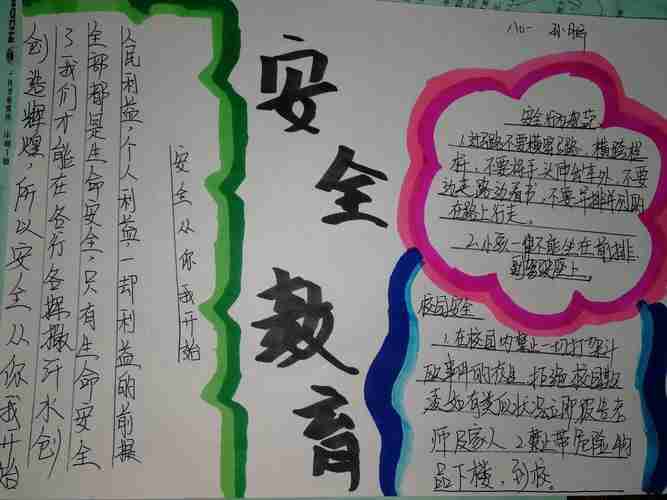 安全教育
八一
安全从你我开始
人民利益,个人利益一却利益的前提
全部都是生命安全,只有生命安全
了我们才能在各行各辉撒汗水创
创造辉煌,所以安全从你我开始
安全行为规范
1.过马路不要横穿马路,横跨栏
杆,不要将手头伸出车外,不要
边走路边看书,不要并排并列的
在路上行走。
2.小孩一律不能坐在前排
副驾驶座上。
校园安全
1.在校园内禁止一切打架斗
殴事件的发生,拒绝校园欺
凌如有类似状况立即报告老
师及家人 2.禁止带危险物
品下楼,到校。